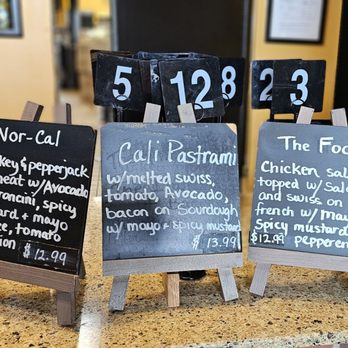 5 12 8 2 3
Nor-Cal
pepperjack
w/Avocado
spicy
+ mayo
tomato
$12.99
Cali Pastrami
w/melted swiss,
tomato, Avocado,
bacon on Sourdough
w/ mayo + spicy mustard
$13.99
The Foo
Chicken sal
topped w/Sal
and swiss on
french w/may
spicy mustard
$12.99 pepperon